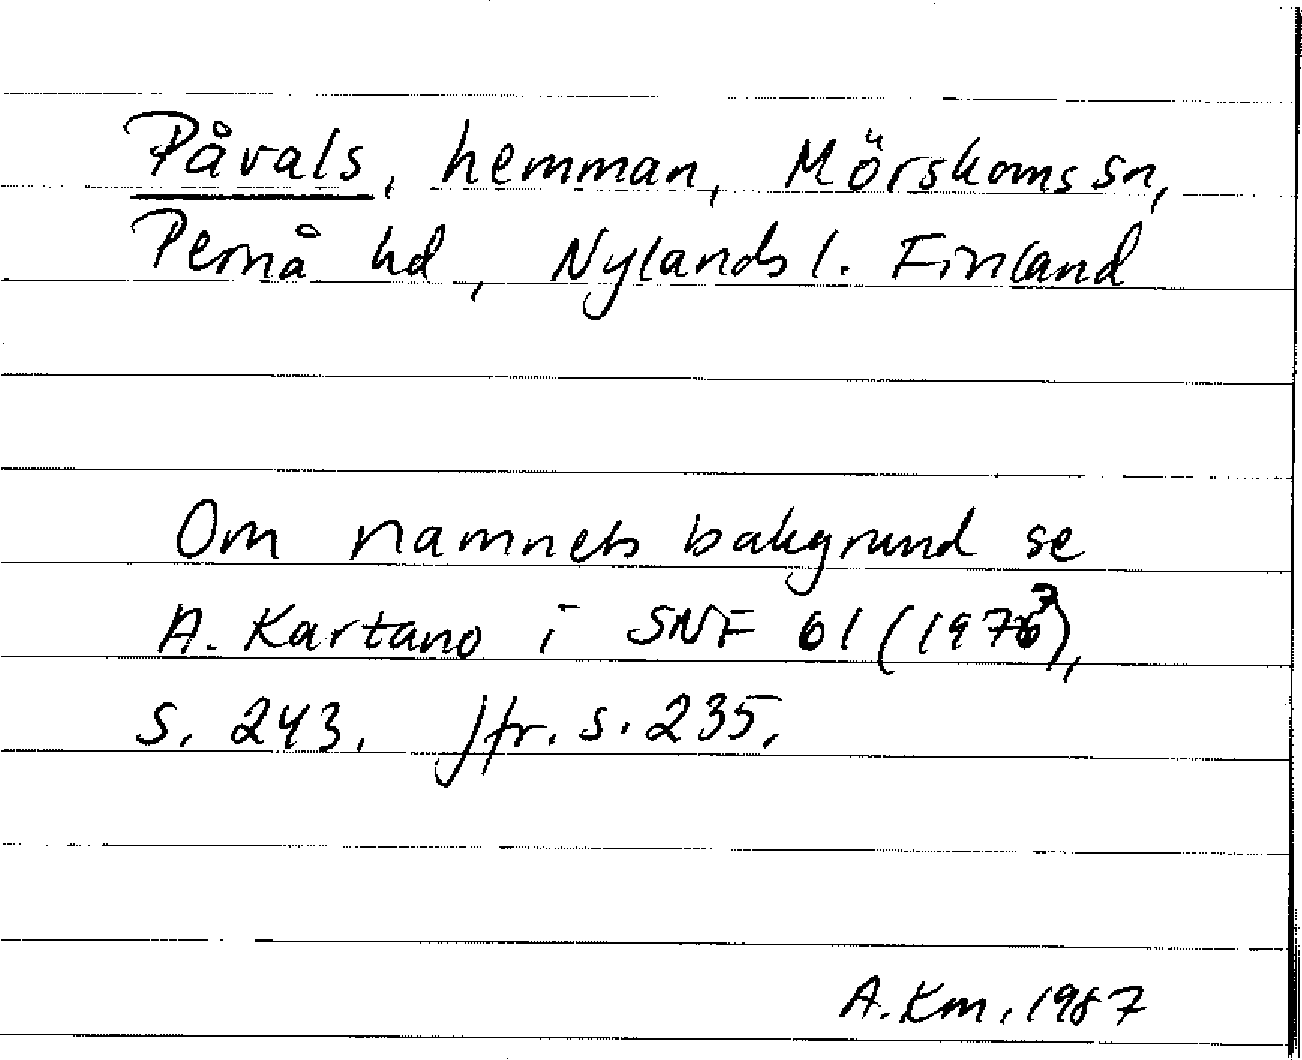 Påvals, hemman, Mörskoms sn,
Pernå hd, Nylands l. Finland
Om namnets bakgrund se
A. Kartano i SNF 61 (1973),
s. 243. Jfr. s. 235.
A.Km. 1987